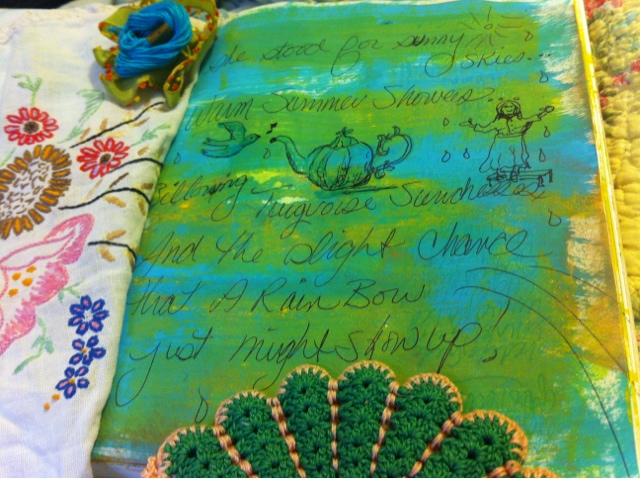 She stood for sunny
skies...
Warm Summer Showers...
Billowing Turquoise Sundresses
And the slight Chance
that A Rain Bow
just might show up!